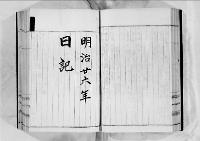 明治廿六年
日記